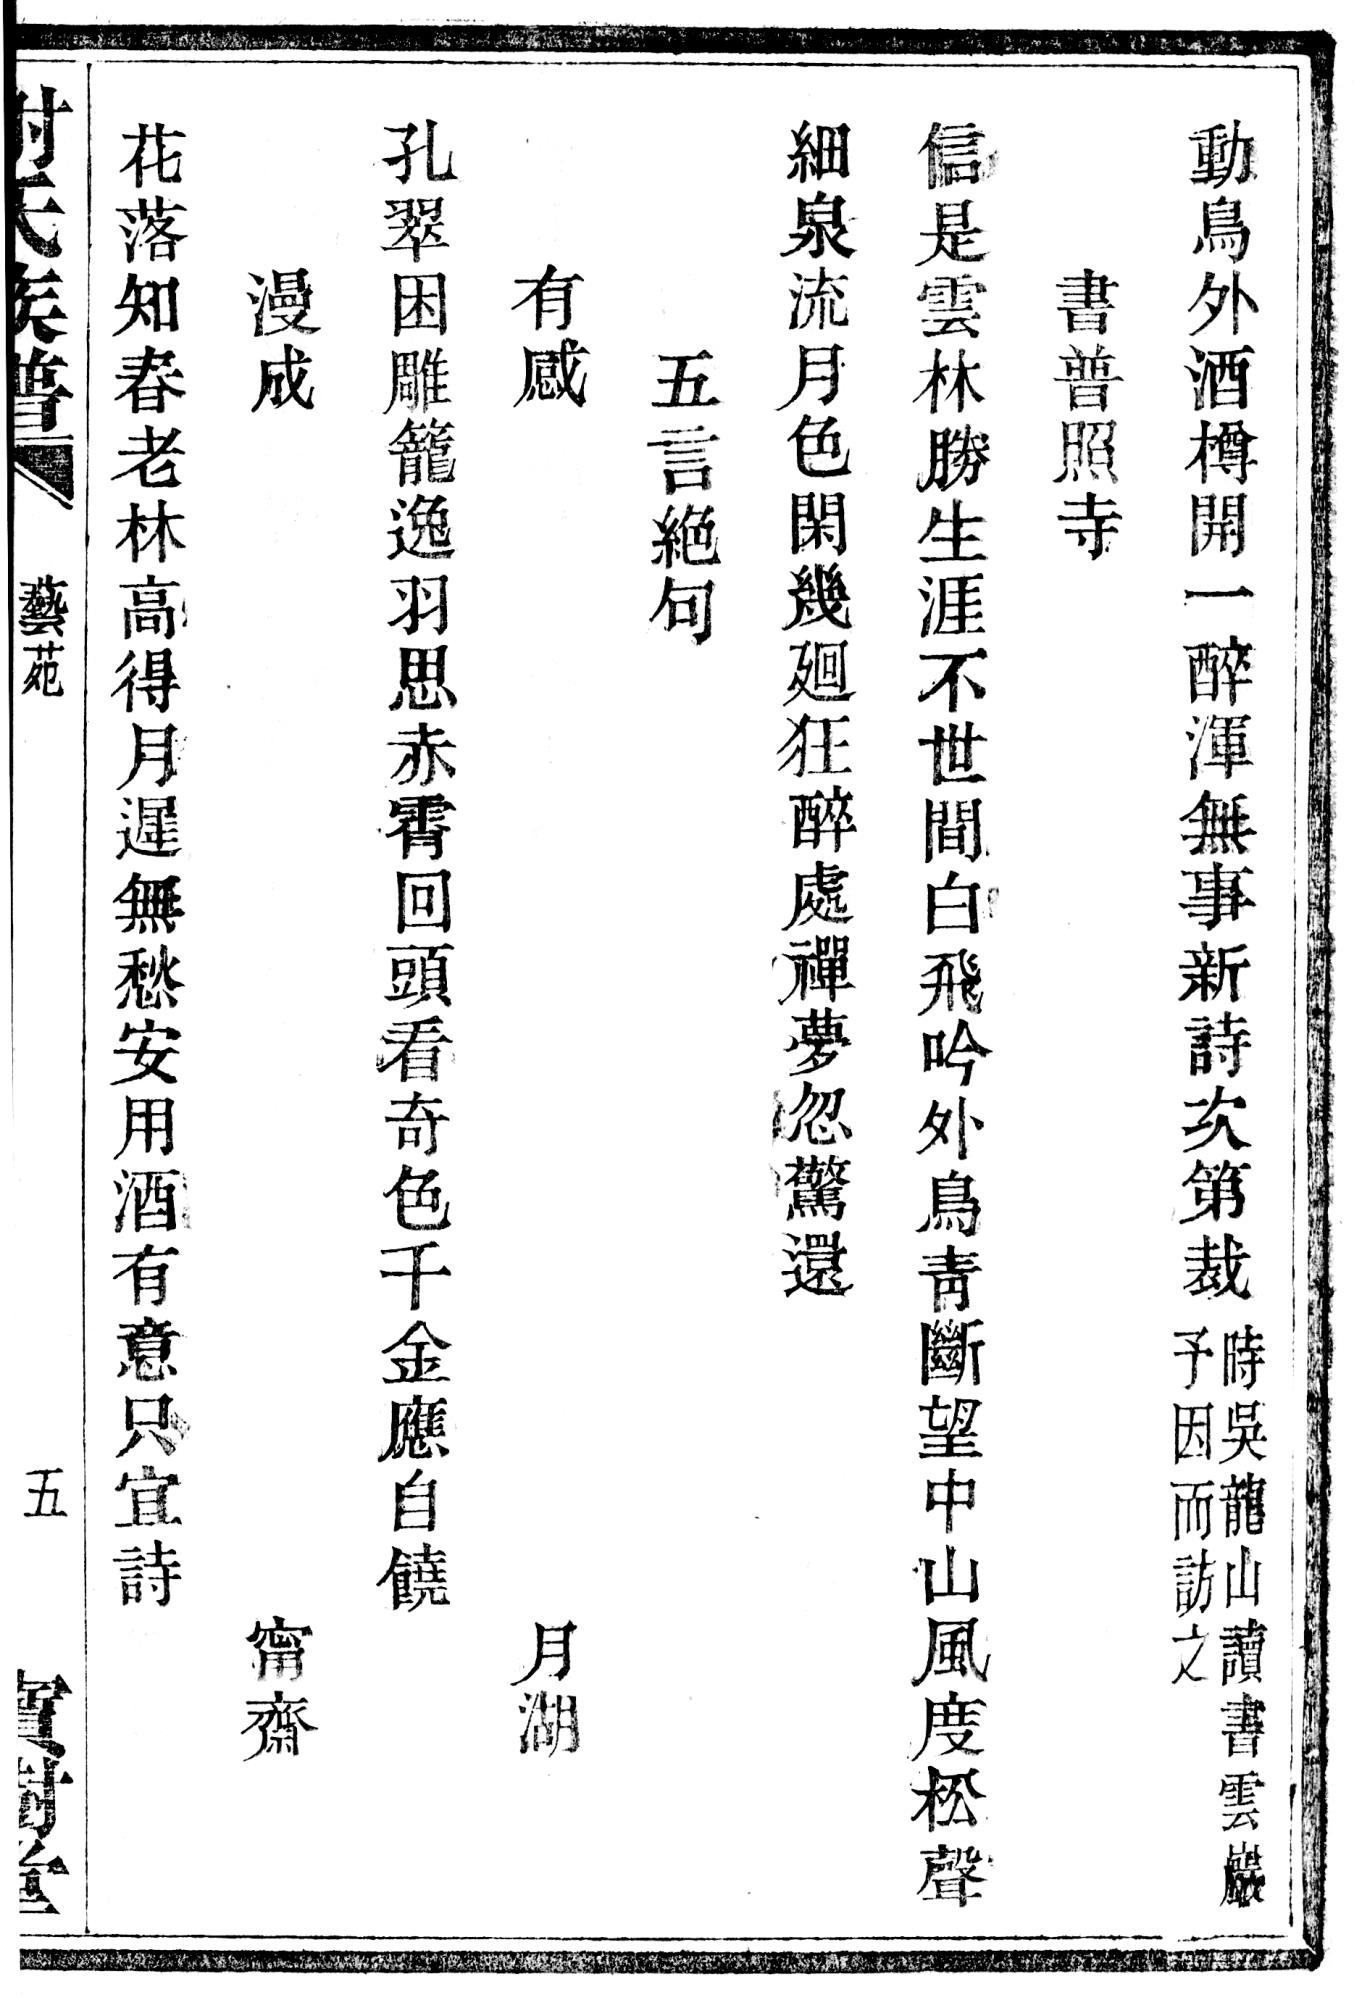 動鳥外酒樽開一醉渾無事新詩次第裁
時吳龍山讀書雲巖
予因而訪之
書普照寺
信是雲林勝生涯不世間白飛吟外鳥靑斷望中山風度松聲
細泉流月色閑幾廻狂醉處禪夢忽驚還
五言絕句
有感 月湖
孔翠困雕籠逸羽思赤霄回頭看奇色千金應自饒
漫成 甯齋
花落知春老林高得月遲無愁安用酒有意只宜詩
謝氏族譜 藝苑 五 寶樹堂